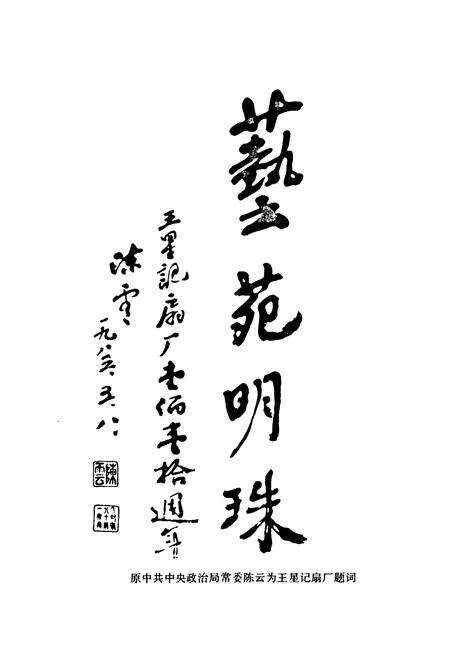 藝苑明珠
王星記扇厂壹佰壹拾週年
陈雲
一九八五、五、八、
陳云
原中共中央政治局常委陈云为王星记扇厂题词